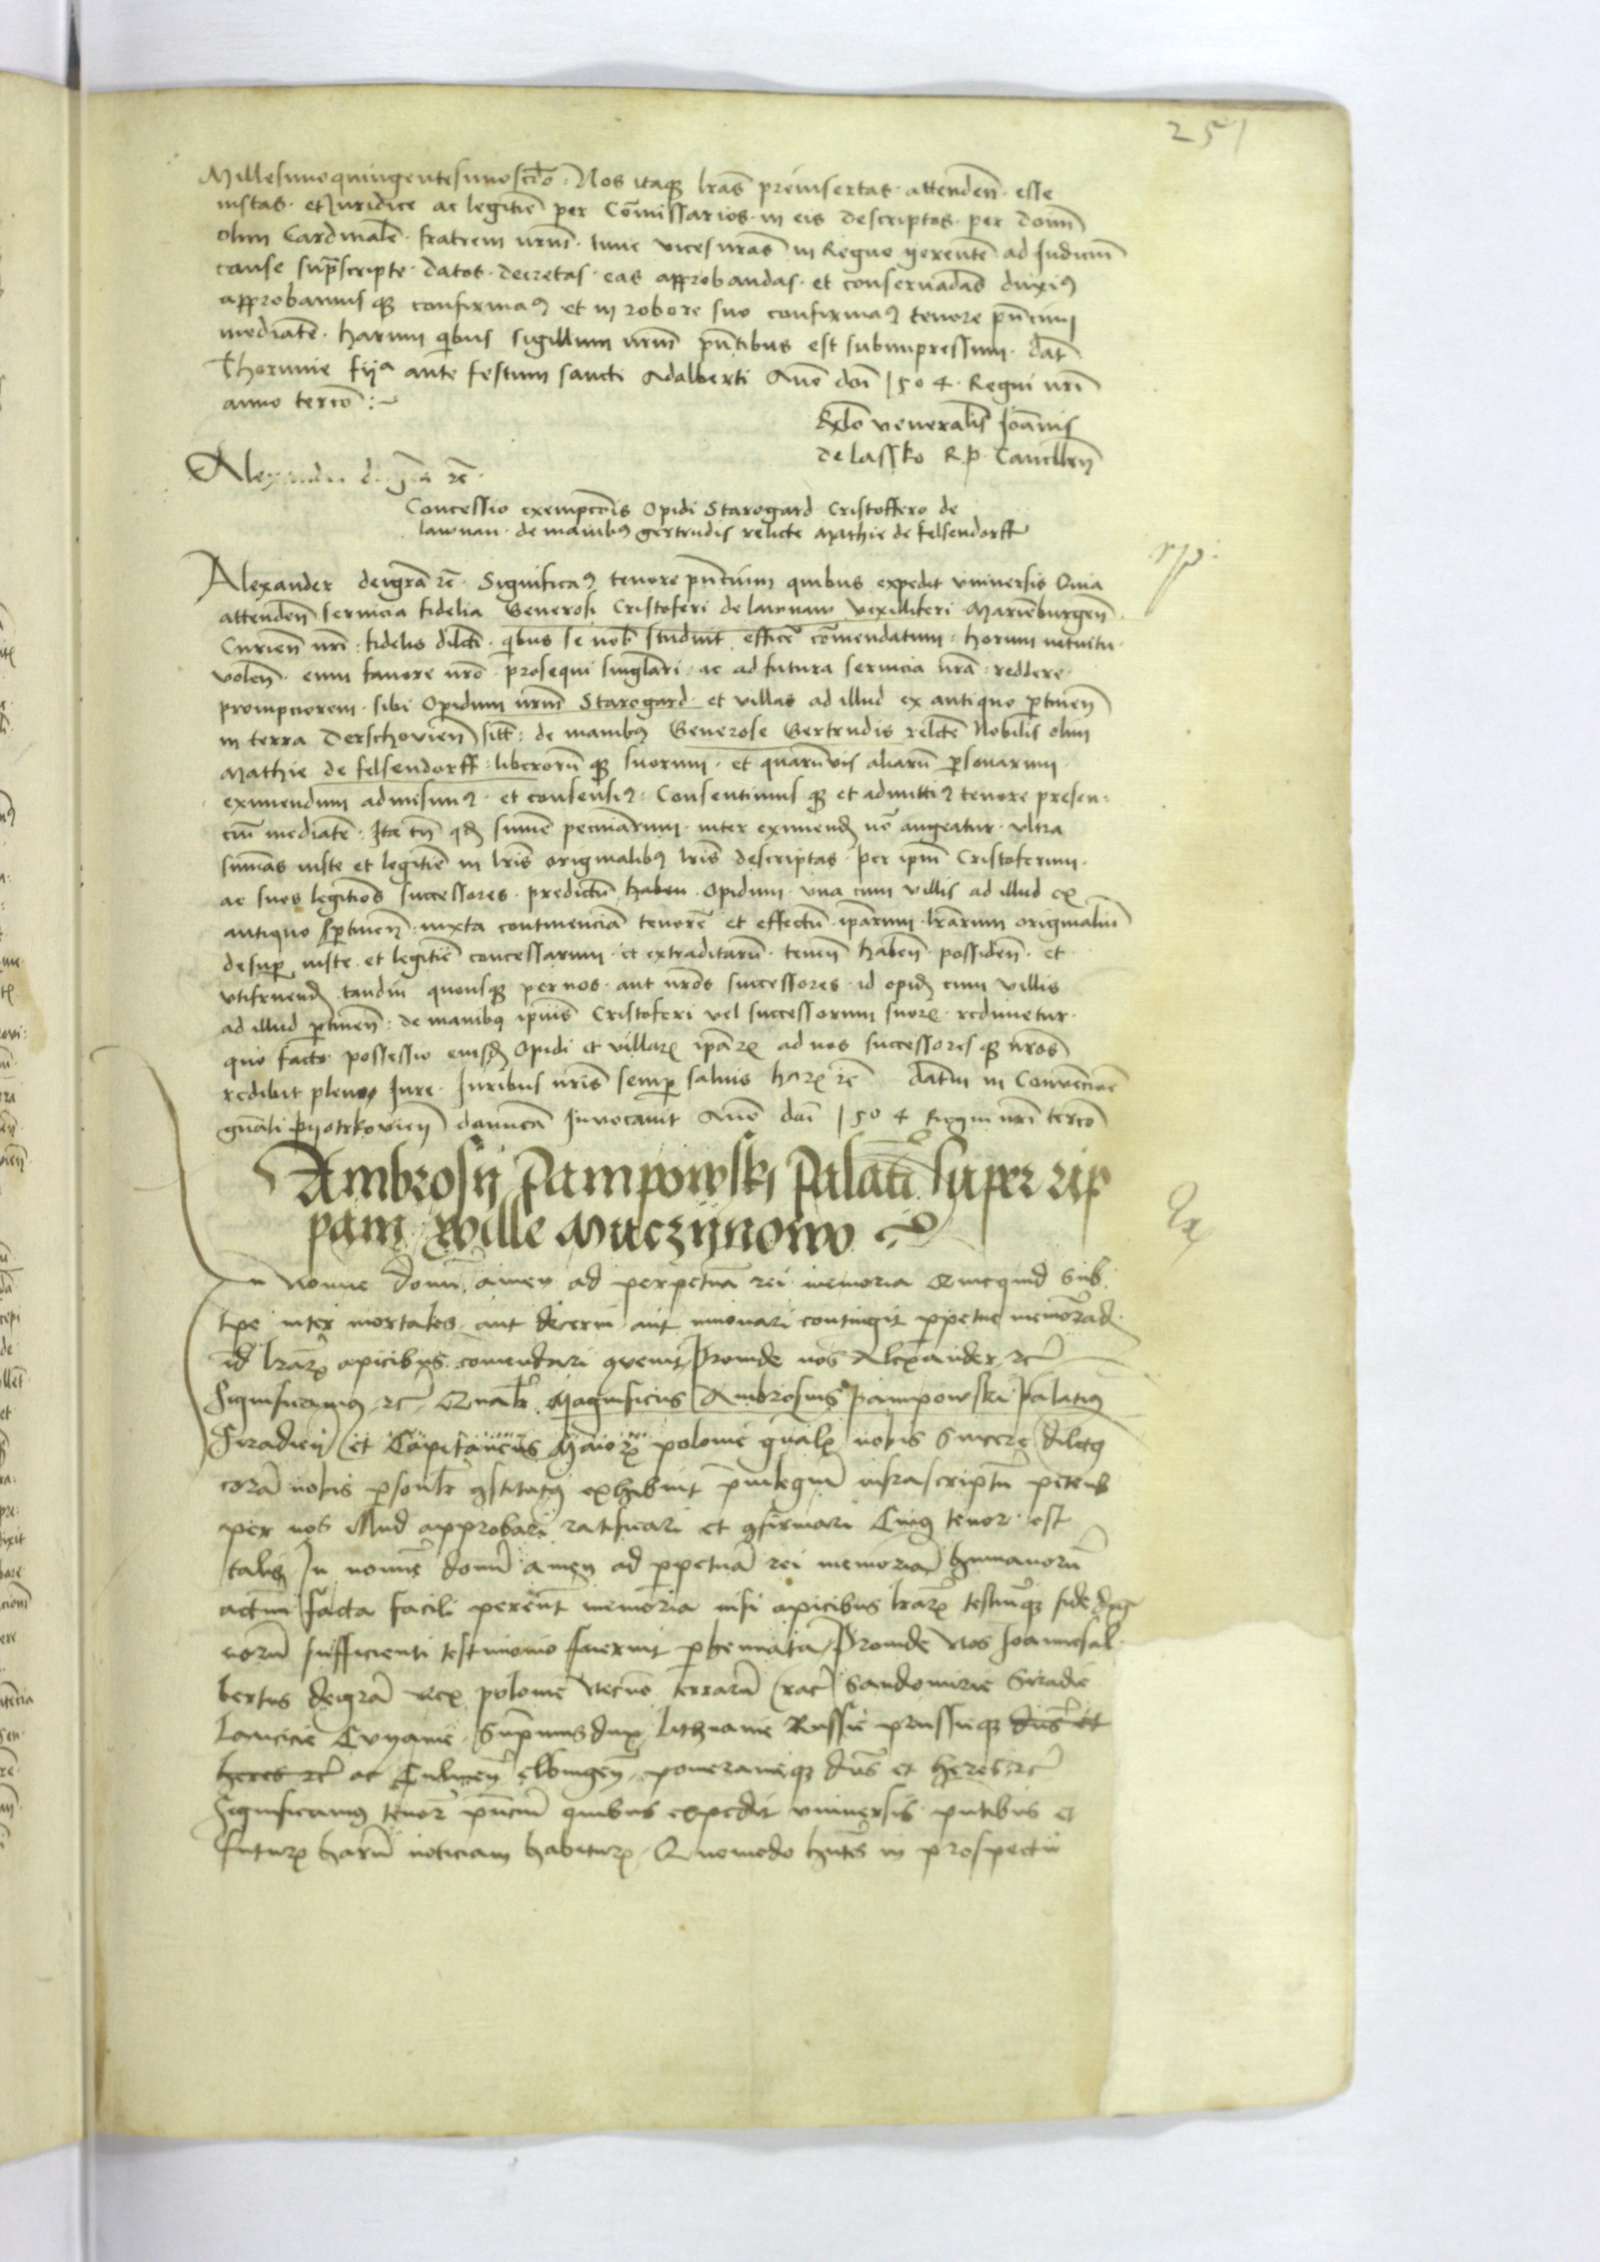 251
Millesimoquingentesimoscdo. Nos itaqȝ lras preinsertas attenden esse
iustas et Juridice ac legitie per Comissarios in eis descriptos per domin
olim Cardinale fratrem nrm tunc vices nras in Regno gerente ad Judicium
cause supscripte datos decretas eas approbandas et conservadas duxiꝰ
approbamus qȝ confirmaꝰ et in robore suo confirmaꝰ tenore pntium
mediate harum qibus sigillum nrm pntibus est subimpressum dat
Thorunie ante festum sancti Adalberti Ano doi 1504 Regni nri
anno tercio
Relo venerabilis Joannis
de Lassko R. p. Cancellarii
Alexander dei gra rc
Concessio exempcois Opidi Starogard Cristoffero de
lawnau de manibꝰ gertrudis relicte Mathie de felsendorff
Alexander dei gra rc Significaꝰ tenore pntium quibus expedit vniversis Quia
attenden servicia fidelia Generosi Cristoferi de lawnaw vexilliferi Marieburgen
Curien nri fidelis dilcti qbus se nob studuit efficẽ comendatum horum intuitu
volen eum favore nro prosequi singlari ac ad futura servicia nra reddere
prompciorem sibi Opidum nrm Starogard et villas ad illud ex antiquo ptinen
in terra Derschovien sitt de manibꝰ Generose Gertrudis relicte Nobilis olim
Mathie de felsendorff liberoru qȝ suorum et quaruvis aliaru psonarum
eximendum admisimꝰ et consensiꝰ Consentimus qȝ et admittiꝰ tenore presen
ciu mediate Ita tn qd summe pecuniarum inter eximend no augeatur vltra
sumas iuste et legitie in lris originalibꝰ lris descriptas per ipm Cristoferum
ac suos legitios successores predictu haben Opidum vna cum villis ad illud ex
antiquo ptinen iuxta continencia tenore et effectu iparum lrarum originaliu
desup iuste et legitie concessarum et extraditaru tenen haben possiden et
vtifruend tandiu quousqȝ per nos aut nros successores id opid cum villis
ad illud ptinen de manibus ipius Cristoferi vel successorum suorꝝ redimetur
quo facto possessio eiusd Opidi et villarꝝ iparꝝ ad nos successores qȝ nros
redibit pleno Jure Juribus nris semp salvis harꝝ rc Datm in Convencioe
gnali pyotrkovien dominica Invocavit Ano doi 1504 Regni nri tercio
Ambrosy Pampowski Palati super rip
pam wille Muczynowo
In nomine domi amen ad perpetua rei memoria Quicquid sub
tpe inter mortales aut decerni aut innovari contingit ppetue memorad
id lrarꝝ apicibus comendari quenit Proinde nos Alexander rc
Significamꝰ rc Qualr Magnificus Ambrosius Pampowski Palatinꝰ
Siradien et Capitaneus Maiorꝝ polonie gnalis nobis sincere dilctꝰ
cora nobis psonalr gstitutꝰ exhibuit privilegiu infrascriptu petens
per nos illud approbari ratificari et gfirmari Cuiꝰ tenor est
talis In nomine domi amen ad ppetua rei memoria humanoru
actum facta facili pereunt memoria nisi apicibus lrarꝝ testiuqȝ fide dig
noru sufficienti testimonio fuerint phennata Proinde Nos Joannesal
bertus dei gra Rex polonie Necno terraru Crac Sandomirie Siradie
Lancicie Cuyavie Supmus dux Lithuanie Russie prussieqȝ dus et
heres rc ac Culmen elbingen pomeranieqȝ dus et heres rc
Significamꝰ tenore pntiu quibus expedit vniversis pntibus et
futurꝝ haru noticiam habiturꝝ Quomodo hntes in prospectu